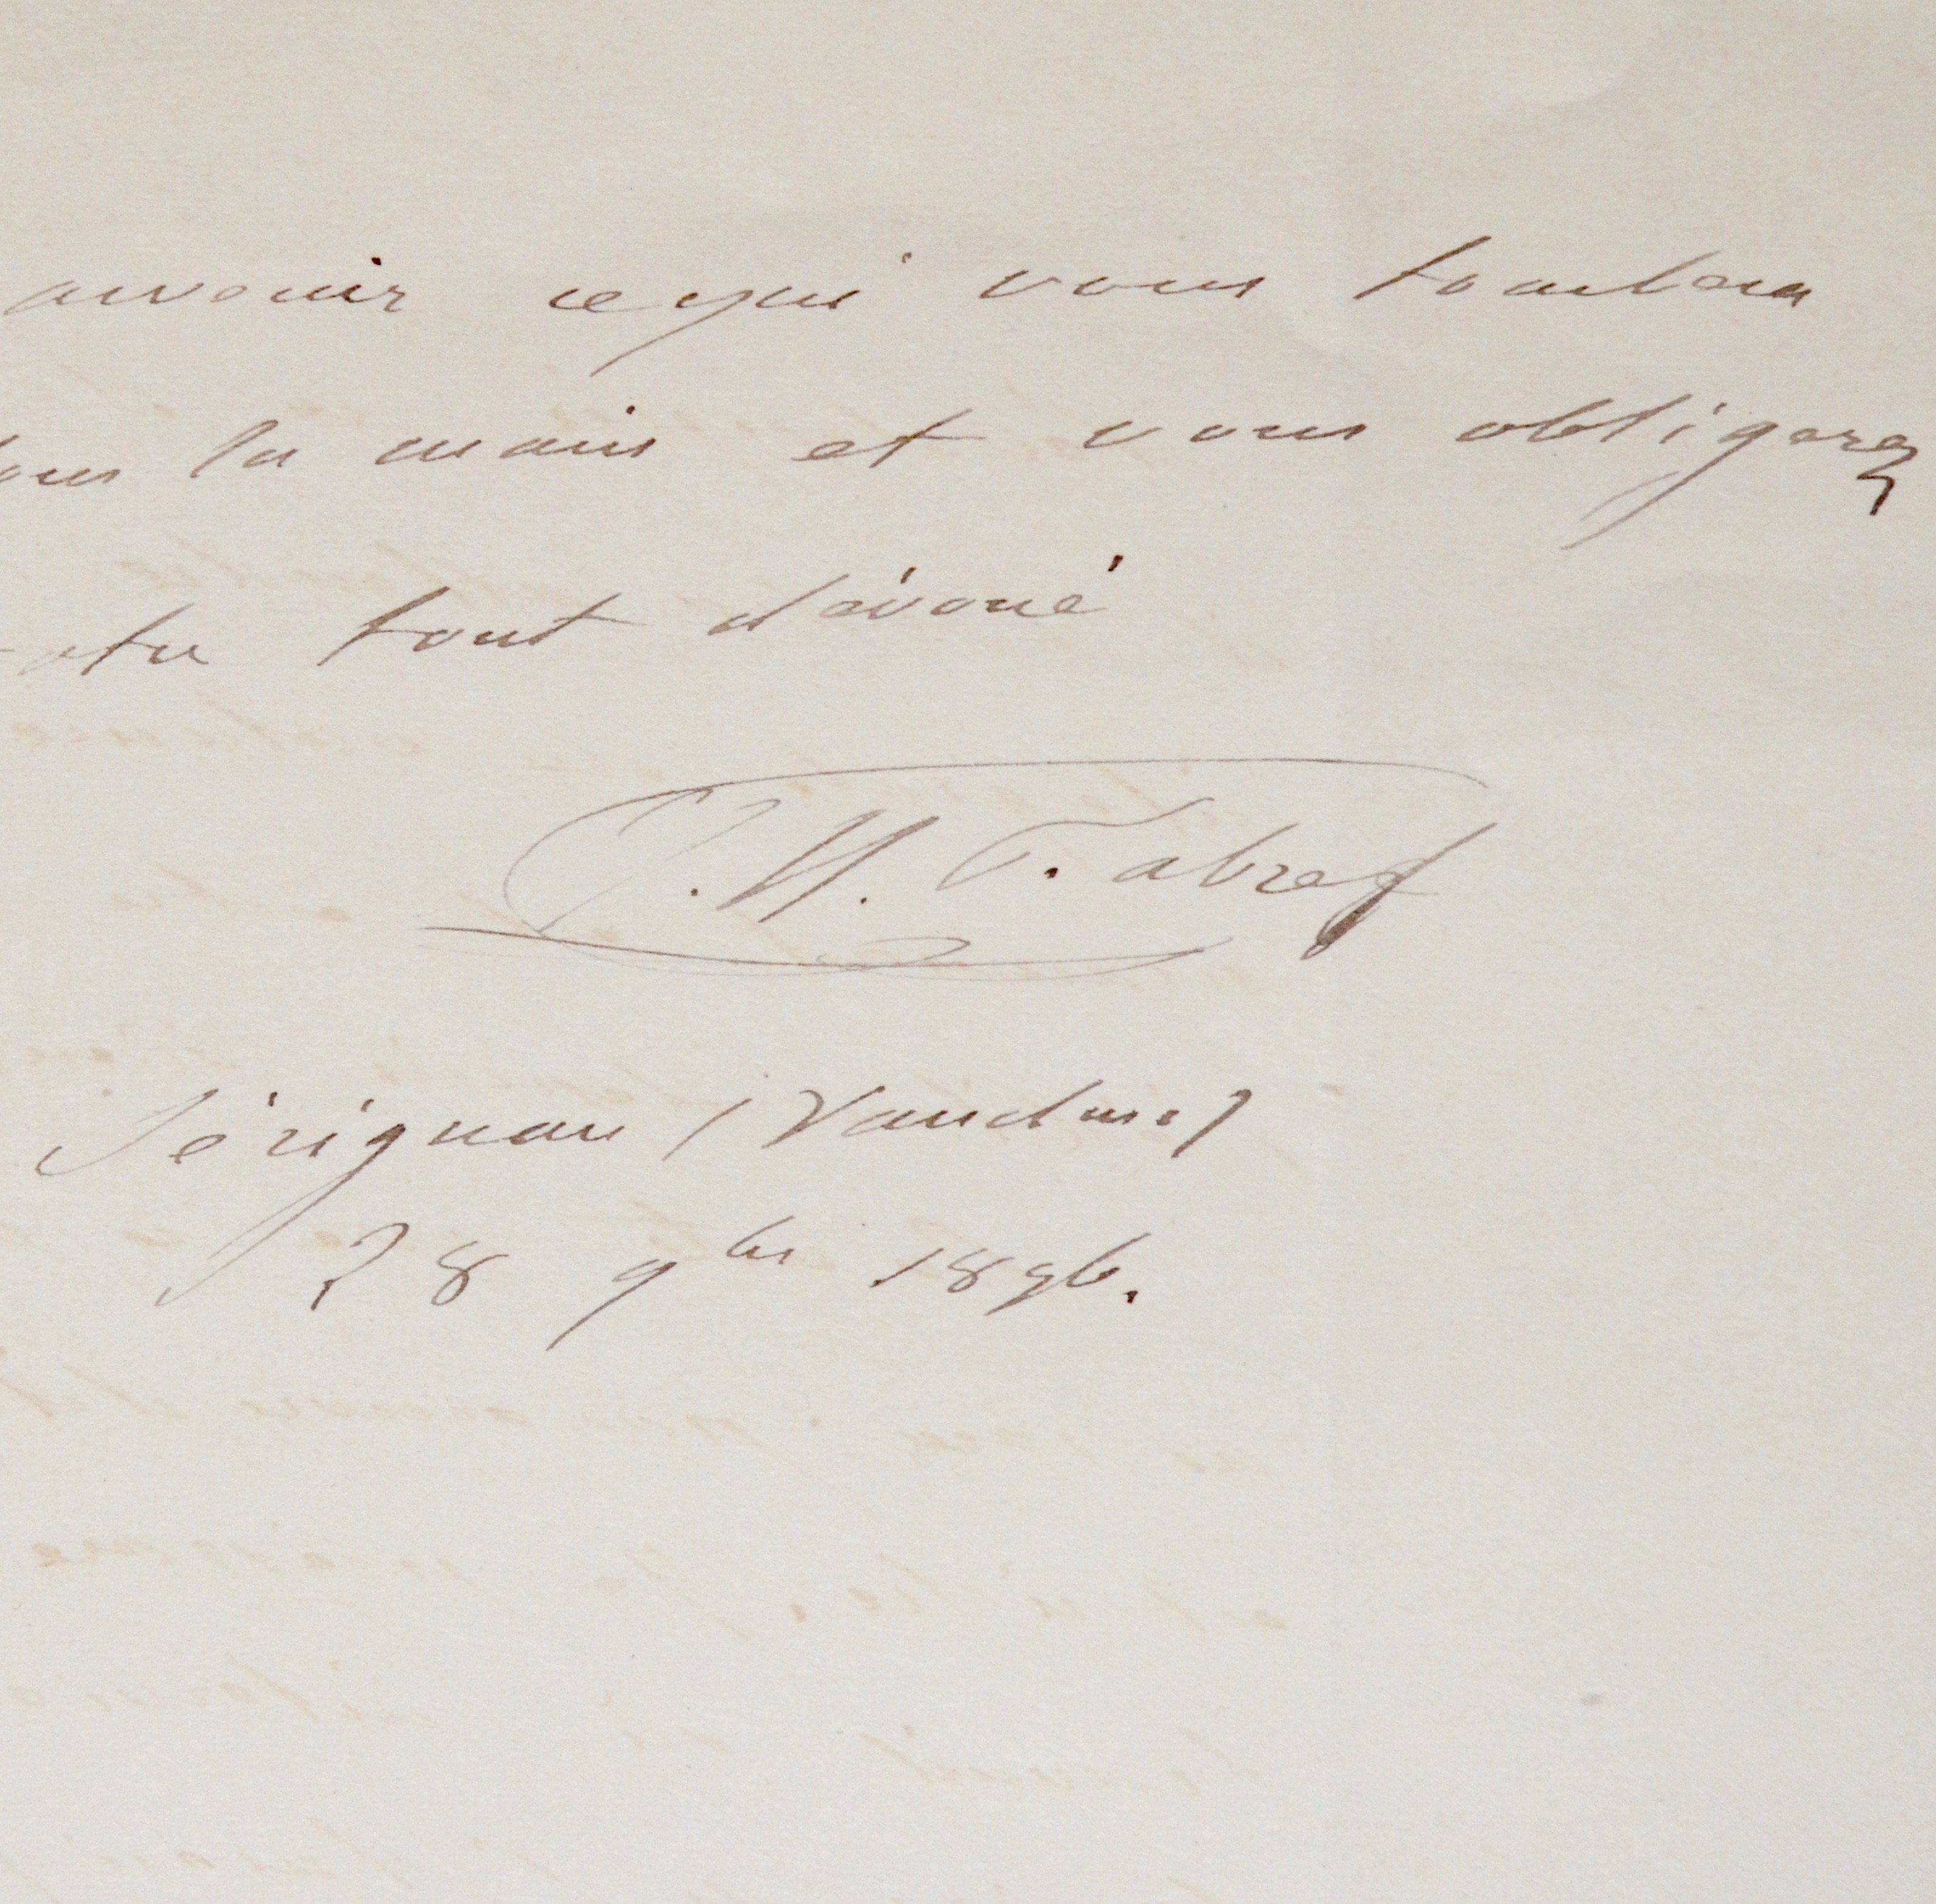 avenir ce qui vous tombera
sous la main et vous obligerez
votre tout dévoué
J. H. Fabre
Sérignan (Vaucluse)
28 9bre 1896.